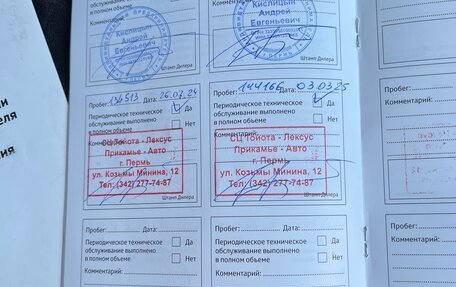 Кислицын
Андрей
Евгеньевич
Штамп Дилера
Кислицын
Андрей
Евгеньевич
Штамп Дилера
Пробег: 134513 Дата: 26.07.24
Периодическое техническое
обслуживание выполнено
в полном объеме
Да
Нет
Комментарий:
СЦ Тойота - Лексус
Прикамье - Авто
г. Пермь
ул. Козьмы Минина, 12
Тел: (342) 277-74-87
Штамп Дилера
Пробег: 144166 Дата: 03.03.25
Периодическое техническое
обслуживание выполнено
в полном объеме
Да
Нет
Комментарий:
СЦ Тойота - Лексус
Прикамье - Авто
г. Пермь
ул. Козьмы Минина, 12
Тел: (342) 277-74-87
Штамп Дилера
Пробег:
Периодическое
обслуживание
в полном объеме
Комментарий:
Пробег: Дата:
Периодическое техническое
обслуживание выполнено
в полном объеме
Да
Нет
Комментарий:
Пробег: Дата:
Периодическое техническое
обслуживание выполнено
в полном объеме
Да
Нет
Комментарий:
Пробег:
Периодическое
обслуживание
в полном объеме
Комментарий: